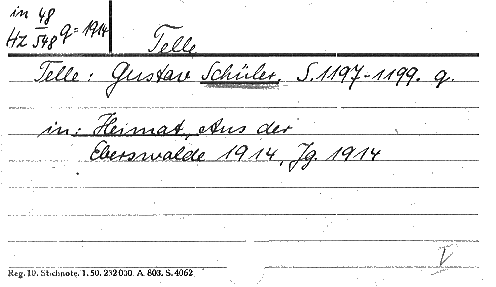 in 48
Hz 548 q = 1914
Telle
Telle: Gustav Schüler. S. 1197-1199. q.
in: Heimat, Aus der
Eberswalde 1914, Jg. 1914
V
Reg. 10. Stichnote. 1. 50. 232 000. A. 803. S. 4062